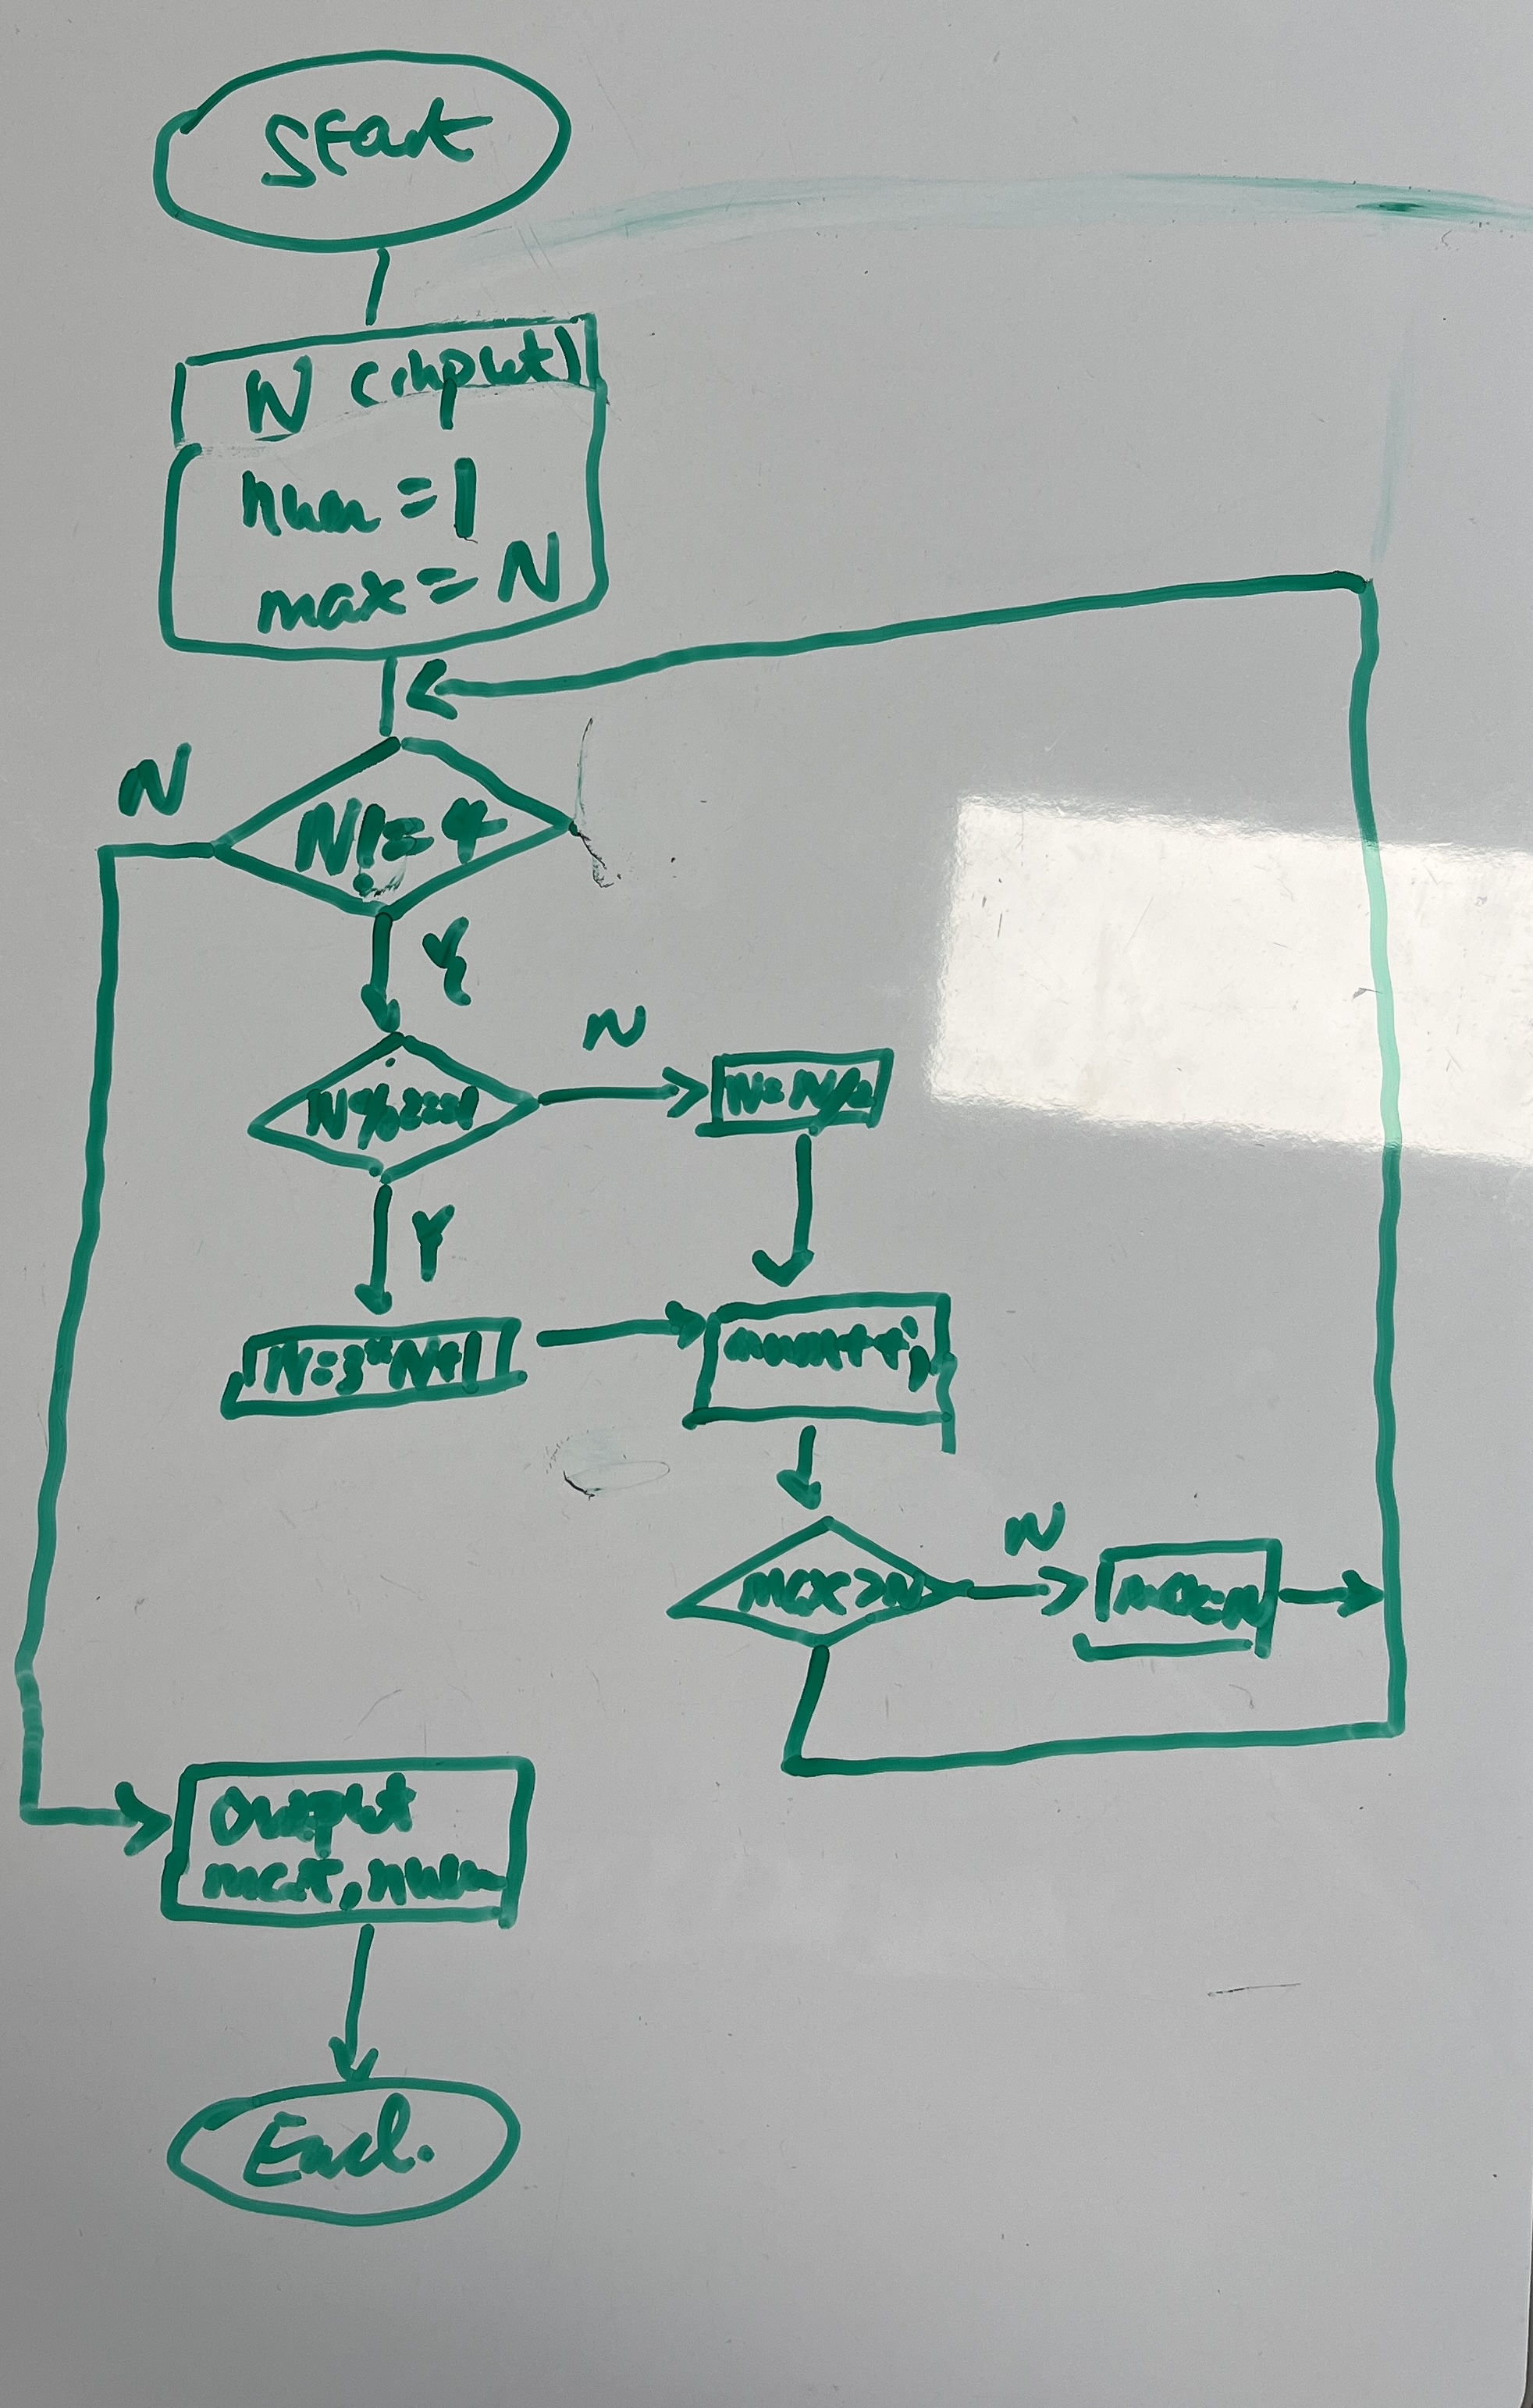 Start
N (input)
num = 1
max = N
N != 4
N
Y
N%2==1
N
N=N/2
Y
N=3*N+1
num++;
max>N
N
max=N
Output
max, num
End.